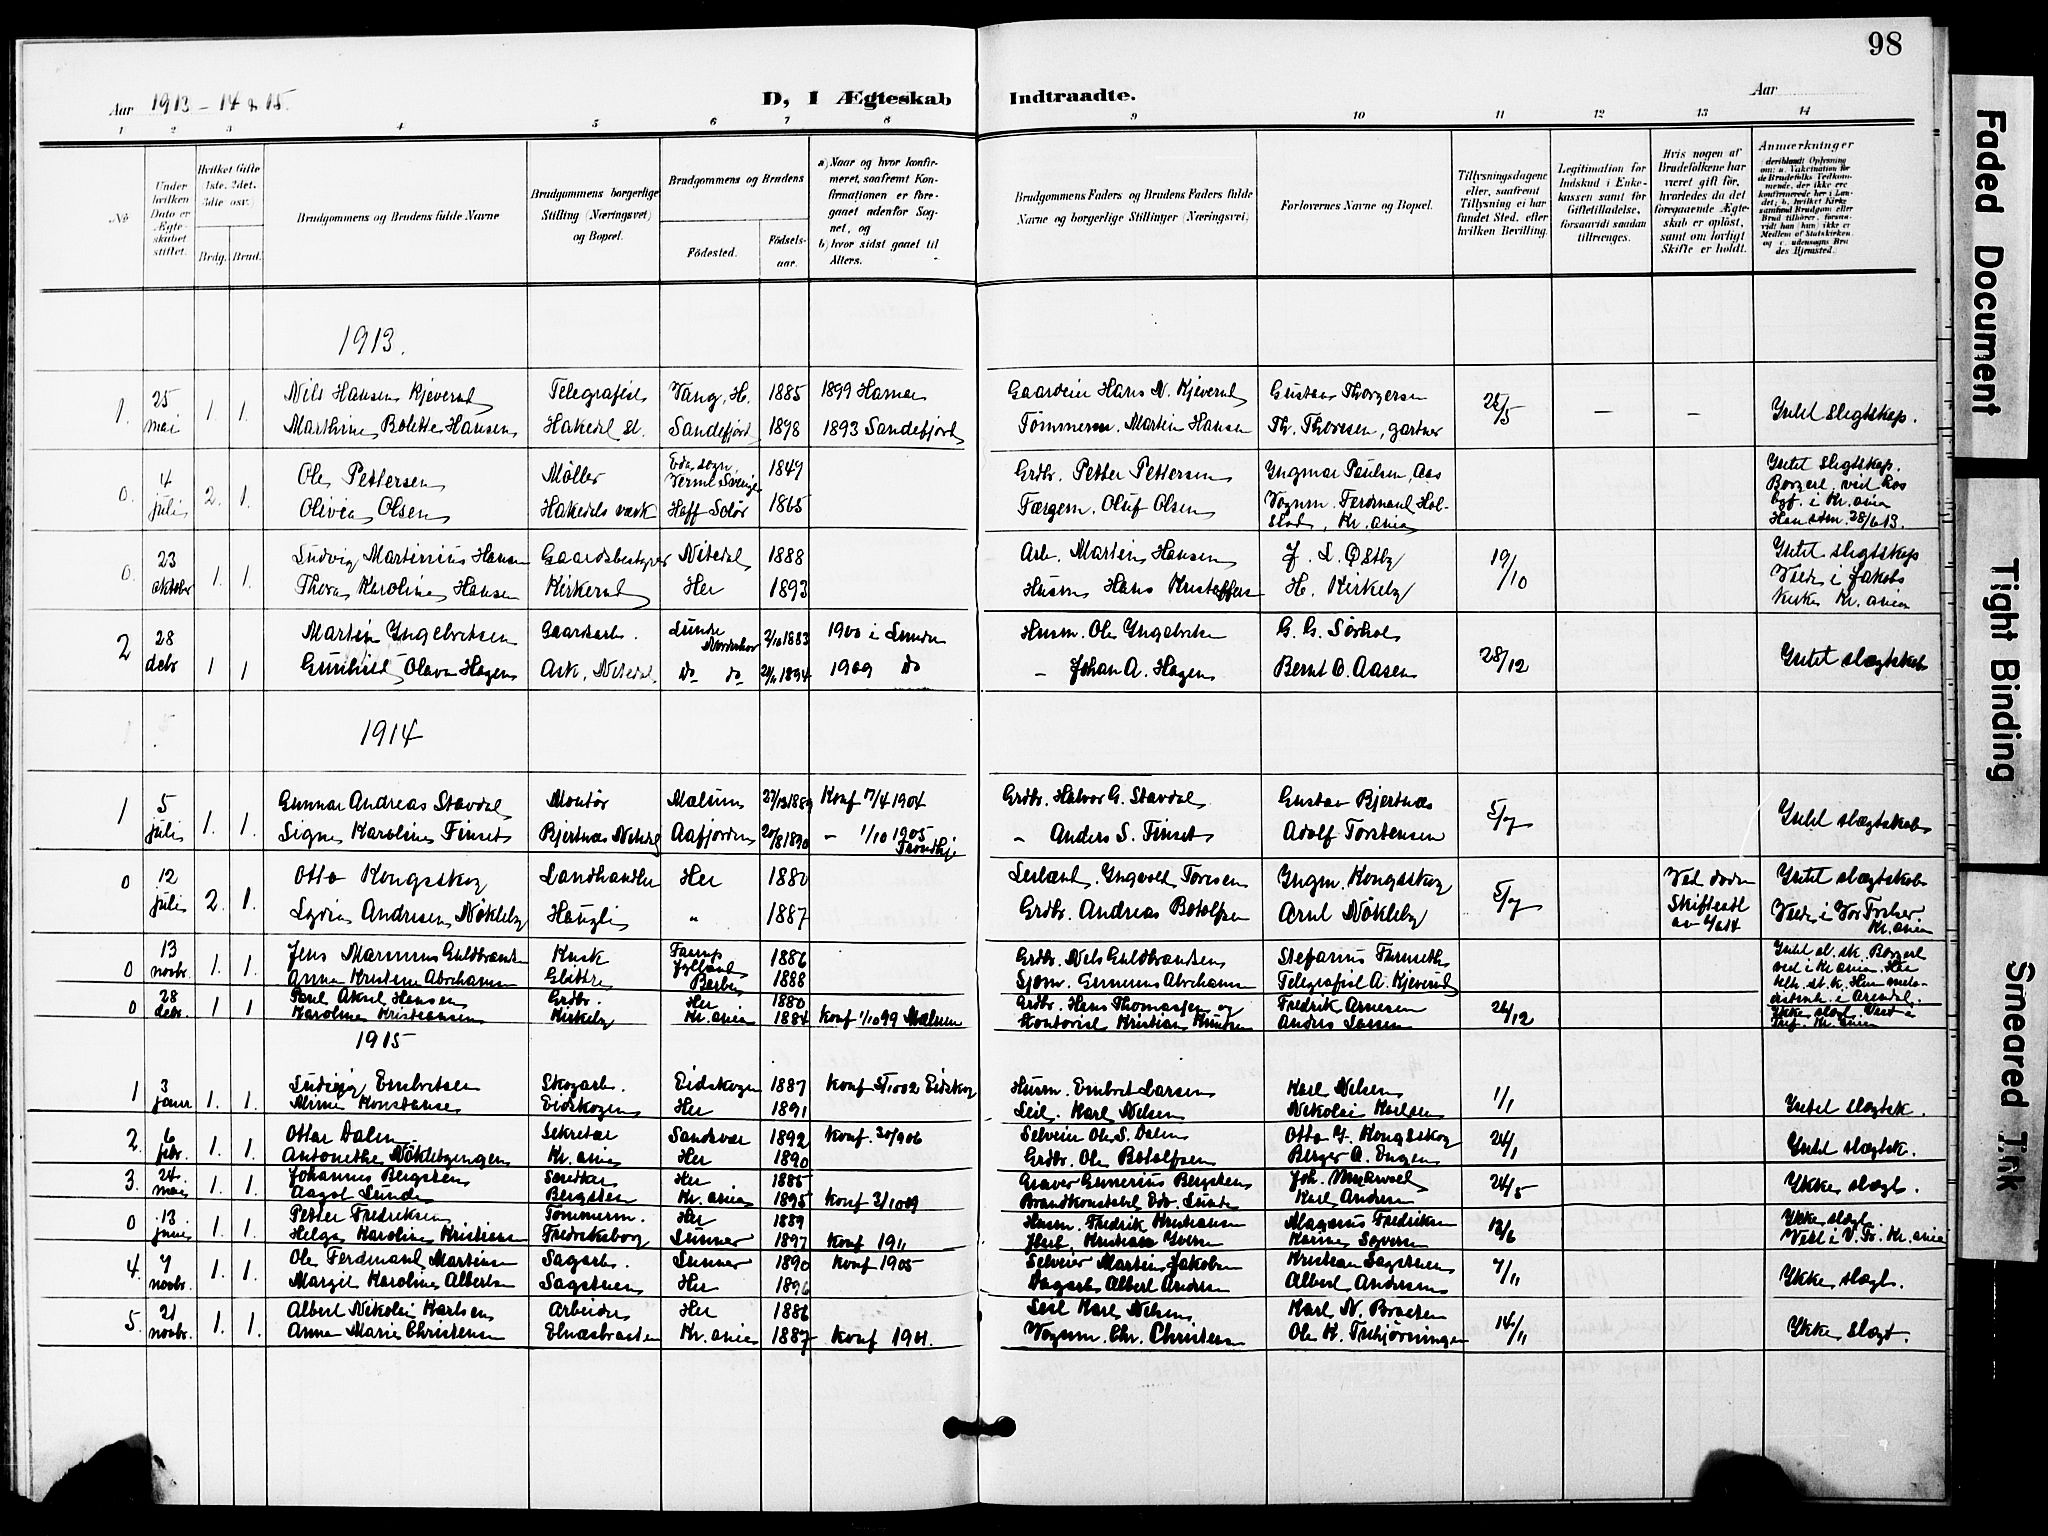 98
Aar 1913 - 14 & 15.
D, I Ægteskab Indtraadte.
Aar
1 2 3 4 5 6 7 8 9 10 11 12 13 14
No
Under hvilken Dato er Ægteskabet stiftet.
Hvilket Gifte 1ste, 2det, 3die osv.)
Brdg. Brud.
Brudgommens og Brudens fulde Navne
Brudgommens borgerlige Stilling (Næringsvei) og Bopæl.
Brudgommens og Brudens
Fødested.
Fødselsaar.
a) Naar og hvor konfirmeret, saafremt Konfirmationen er foregaaet udenfor Sognet, og
b) hvor sidst gaaet til Alters.
Brudgommens Faders og Brudens Faders fulde Navne og borgerlige Stillinger (Næringsvei)
Forlovernes Navne og Bopæl.
Tillysningsdagene eller, saafremt Tillysning ei har fundet Sted, efter hvilken Bevilling.
Legitimation for Indskud i Enkekassen samt for Giftetilladelse, forsaavidt saadan tiltrænges.
Hvis nogen af Brudefolkene har været gift før, hvorledes da det foregaaende Ægteskab er opløst, samt om lovligt Skifte er holdt.
Anmærkninger
1913.
1. 25 mai 1. 1. Nils Hansen Kjeverud Telegrafist Vang, H. 1885 1899 Hamar Gaardeier Hans N. Kjeverud Gustav Thorgersen 25/5 — — Intet slegtskap.
Marthine Bolette Hansen Hakedal st. Sandefjord 1878 1893 Sandefjord Tømmerm. Martin Hansen Th. Thoresen, gartner
0. 4 juli 2. 1. Ole Pettersen Møller Eda sogn, Verml. Sverige 1849 Grdbr. Petter Pettersen Yngmar Paulsen, Aas Intet slegtskap.
Olivia Olsen Hakedals verk Hoff Solør 1865 Færgem. Oluf Olsen Vognm. Ferdinand Holstad, Kr.ania Borgerl. viet hos byf. i Kr.ania 28/6 13.
0. 23 oktober 1. 1. Ludvig Martinius Hansen Gaardsbestyrer Nitedal 1888 Arb. Martin Hansen J. L. Østby 19/10 Intet slegtskap
Thora Karoline Hansen Kirkerud Her 1893 Husm. Hans Kristoffersen H. Kirkeby Viede i Jakobs kirke Kr.ania
2 28 debr 1 1 Martin Yngebretsen Gaardsarb. Lunde Norderhov 2/10 1883 1900 i Lunder Husm. Ole Yngebretsen G. G. Sørhol 28/12 Intet slægtskab
Gunhild Olava Hagen Ask, Nitedal. do do 1894 1909 do — Johan A. Hagen Bernt O. Aasen
1914
1 5 juli 1. 1. Gunnar Andreas Stavdal Montør Modum 27/12 1889 Konf 17/4 1904 Grdbr. Halvor G. Stavdal Gustav Bjertnæs 5/7 Intet slægtskab
Signe Karoline Finset Bjertnæs Nitedal Aafjorden 20/8 1890 — 1/10 1905 Trondhj. — Anders S. Finset Adolf Torstensen
0 12 juli 2. 1. Otto Kongsskog Landhandler Her 1880 Leilænd. Yngvold Toresen Yngm. Kongsskog 5/7 Ved døden Intet slægtskab
Lydia Andrisen Nøkleby Haugli " 1887 Grdbr. Andreas Botolfsen Arnt Nøkleby Skifteatt av 4/6 14 Viede i Vor Frelser. Kr.ania
0 13 novbr. 1. 1. Jens Marinus Guldbrandsen Kusk Jylland 1886 Grdbr. Nils Guldbrandsen Stefanus Intet sl.sk. Borgerl
Anna Kristine Abrahamsen Glittre Barbu 1888 Sjøm. Gunnus Abrahamsen Telegrafist A. Kjeverud viet i Kr.ania. i Arendal.
0 28 debr. 1 1 Paul Aksel Hansen Grdbr. Her 1880 Grdbr. Hans Thomassen og Fredrik Arnesen 26/12 Ikke slægt. Viet i
Karoline Kristiansen Kirkeby Kr.ania 1884 Konf 1/10 99 Kontorist Kristian Knutsen Anders Larsen Tref. Kr.ania
1915
1 3 januar 1. 1. Ludvig Embretsen Skogarb. Eidskogen 1887 Konf 5/10 02 Eidskog Husm. Embret Larsen Karl Nelsen 1/1 Intet slægtsk.
Mimi Konstanse Eidskogen Her 1891 Leil. Karl Nelsen Nikolai Karlsen
2. 6 febr. 1. 1. Ottar Dalen Sekretær Sandsvær 1892 Konf. 30/9 06 Selveier Ole S. Dalen Otto Y. Kongsskog 24/1 Intet slægtsk.
Antonethe Nøklebyengen Kr.ania Her 1890 Grdbr. Ole Botolfsen Berger A. Engen
3. 24. mai 1. 1. Johannes Bergsteen Her 1885 Graver Gunerius Bergsteen Joh. 24/5 Ykke slægt.
Aagot Lunde Bergsteen Kr.ania 1895 Konf 3/10 09 Brandkonstabel Edv. Lunde Karl Andersen
0 13. juni 1. 1. Petter Fredriksen Tømmerm. Her 1889 Husm. Fredrik Kristiansen Magnus Fredriksen 13/6 Ykke slægt.
Helga Karoline Kristiansen Fredriksborg Lunner 1897 Konf 1911 Kristian Yversen Karine Syversen Viet i V. Fr. Kr.ania
4. 7 novbr. 1. 1. Ole Ferdinand Martinsen Sagarb. Lunner 1890 Konf 1905 Selveier Martin Jakobsen Kristian Sagstuen 7/11 Ykke slægt.
Margit Karoline Albertsen Sagstuen Her 1896 Dagarb. Albert Andersen Albert Andersen
5. 21 novbr. 1. 1. Albert Nikolai Karlsen Arbeider Her 1886 Leil Karl Nelsen Karl N. Braaten 14/11 Ykke slægt.
Anna Marie Christensen Elnæsbraaten Kr.ania 1887 Konf 1901. Vognm. Chr. Christensen Ole K.
Faded Document
Tight Binding
Smeared Ink